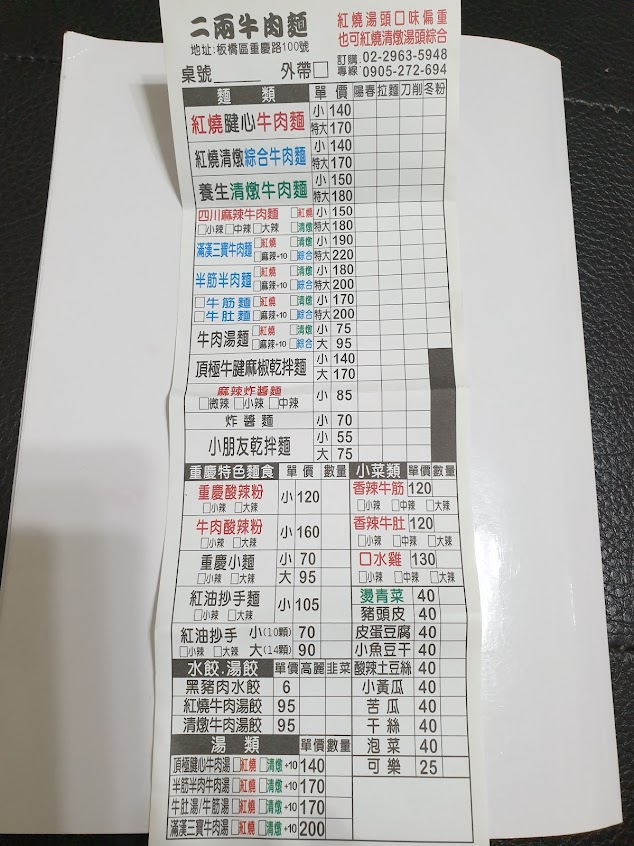 二兩牛肉麵
地址:板橋區重慶路100號
紅燒湯頭口味偏重
也可紅燒清燉湯頭綜合
訂購 02-2963-5948
專線 0905-272-694
桌號______ 外帶□
麵類 單價 陽春 拉麵 刀削 冬粉
紅燒腱心牛肉麵 小 140
特大 170
紅燒清燉綜合牛肉麵 小 140
特大 170
養生清燉牛肉麵 小 150
特大 180
四川麻辣牛肉麵 □紅燒 小 150
□小辣 □中辣 □大辣 □清燉 特大 180
滿漢三寶牛肉麵 □紅燒 □清燉 小 190
□麻辣+10 □綜合 特大 220
半筋半肉麵 □紅燒 □清燉 小 180
□麻辣+10 □綜合 特大 200
□牛筋麵 □紅燒 □清燉 小 170
□牛肚麵 □麻辣+10 □綜合 特大 200
牛肉湯麵 □紅燒 □清燉 小 75
□麻辣+10 □綜合 大 95
頂極牛腱麻椒乾拌麵 小 140
大 170
麻辣炸醬麵 小 85
□微辣 □小辣 □中辣
炸醬麵 小 70
小朋友乾拌麵 小 55
大 75
重慶特色麵食 單價 數量
重慶酸辣粉 小 120
□小辣 □大辣
牛肉酸辣粉 小 160
□小辣 □大辣
重慶小麵 小 70
□小辣 □大辣 大 95
紅油抄手麵 小 105
□小辣 □大辣
紅油抄手 小(10顆) 70
□小辣 □大辣 大(14顆) 90
水餃.湯餃 單價 高麗 韭菜
黑豬肉水餃 6
紅燒牛肉湯餃 95
清燉牛肉湯餃 95
湯類 單價 數量
頂極腱心牛肉湯 □紅燒 □清燉+10 140
半筋半肉牛肉湯 □紅燒 □清燉+10 170
牛肚湯/牛筋湯 □紅燒 □清燉+10 170
滿漢三寶牛肉湯 □紅燒 □清燉+10 200
小菜類 單價 數量
香辣牛筋 120
□小辣 □中辣 □大辣
香辣牛肚 120
□小辣 □中辣 □大辣
口水雞 130
□小辣 □中辣 □大辣
燙青菜 40
豬頭皮 40
皮蛋豆腐 40
小魚豆干 40
酸辣土豆絲 40
小黃瓜 40
苦瓜 40
干絲 40
泡菜 40
可樂 25